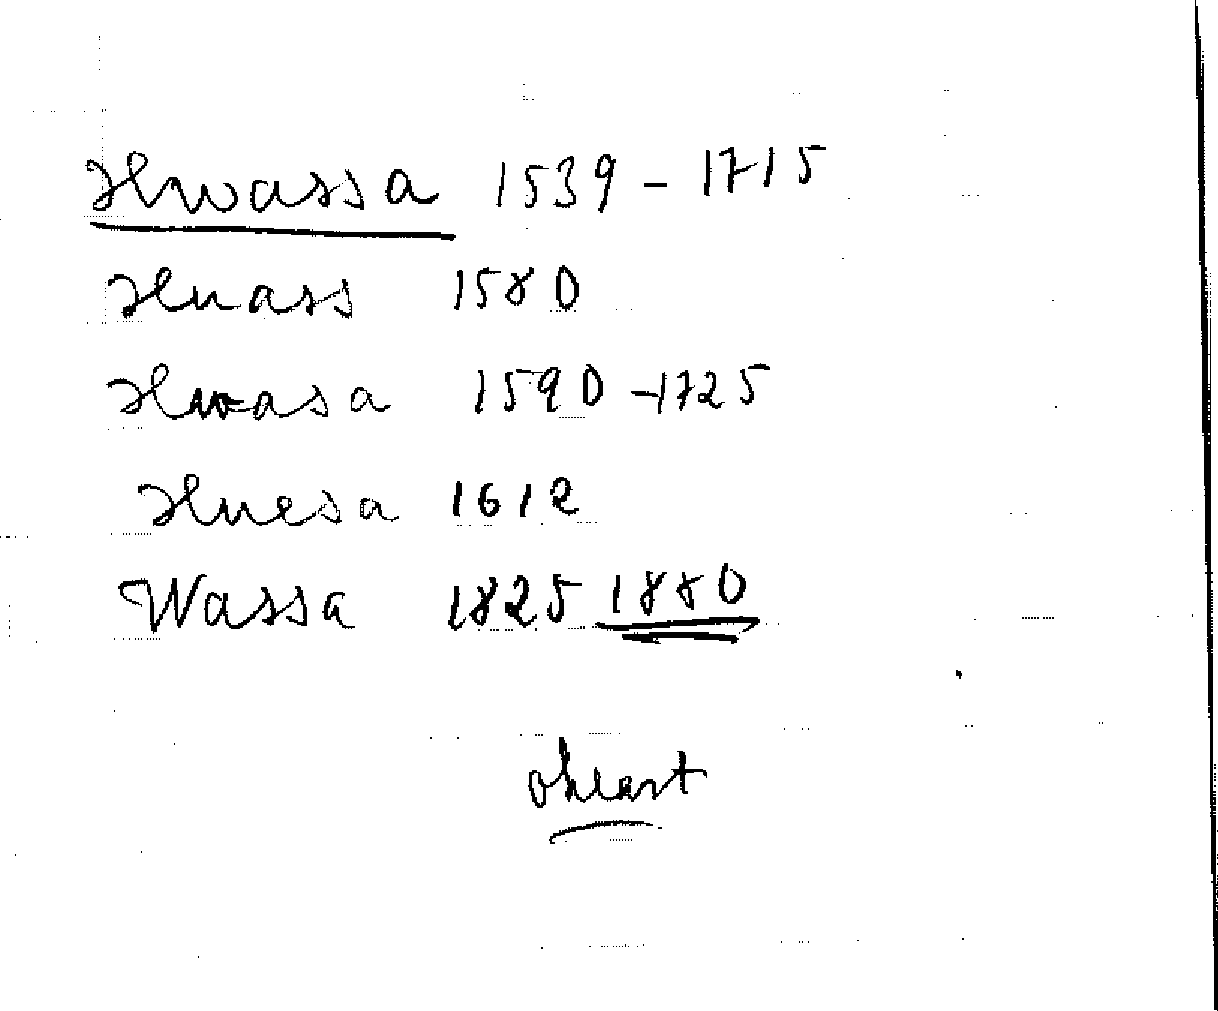 Hwassa 1539 - 1715
Huass 1580
Hwasa 1590 - 1725
Huesa 1612
Wassa 1825 1880
oklart